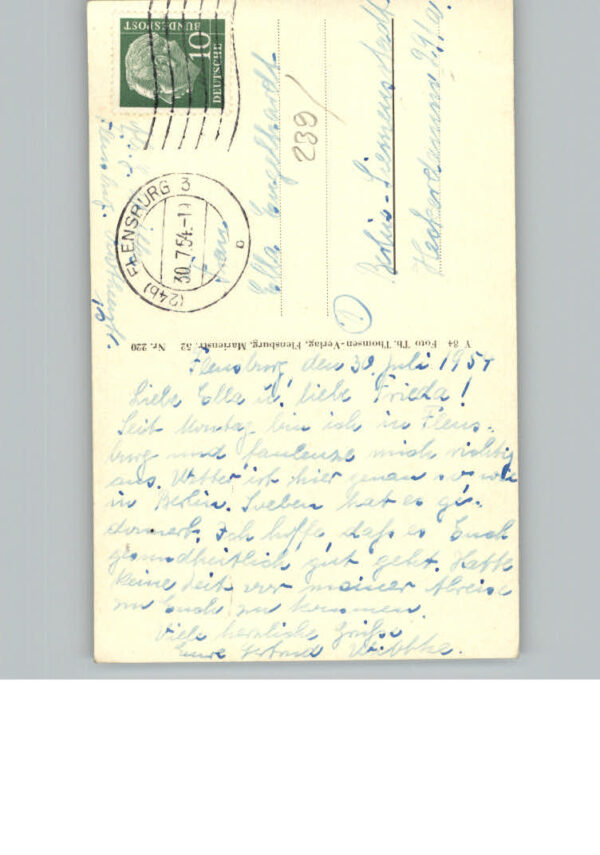 10
DEUTSCHE
BUNDESPOST
(24b) FLENSBURG 3
30.7.54.-19
b
Frau
Ella Engelhardt
Berlin-Siemensstadt
239/
1
Nr. 220
V 84 Foto Th. Thomsen-Verlag, Flensburg, Marienstr. 52
Flensburg den 30. Juli 1954
Liebe Ella u. liebe Frieda!
Seit Montag bin ich in Flens-
burg und faulenze mich richtig
aus. Wetter ist hier genau so wie
in Berlin. Soeben hat es ge-
donnert. Ich hoffe, daß es Euch
gesundheitlich gut geht. Hatte
keine Zeit vor meiner Abreise
zu Euch zu kommen.
Viele herzliche Grüße
Eure Gertrud